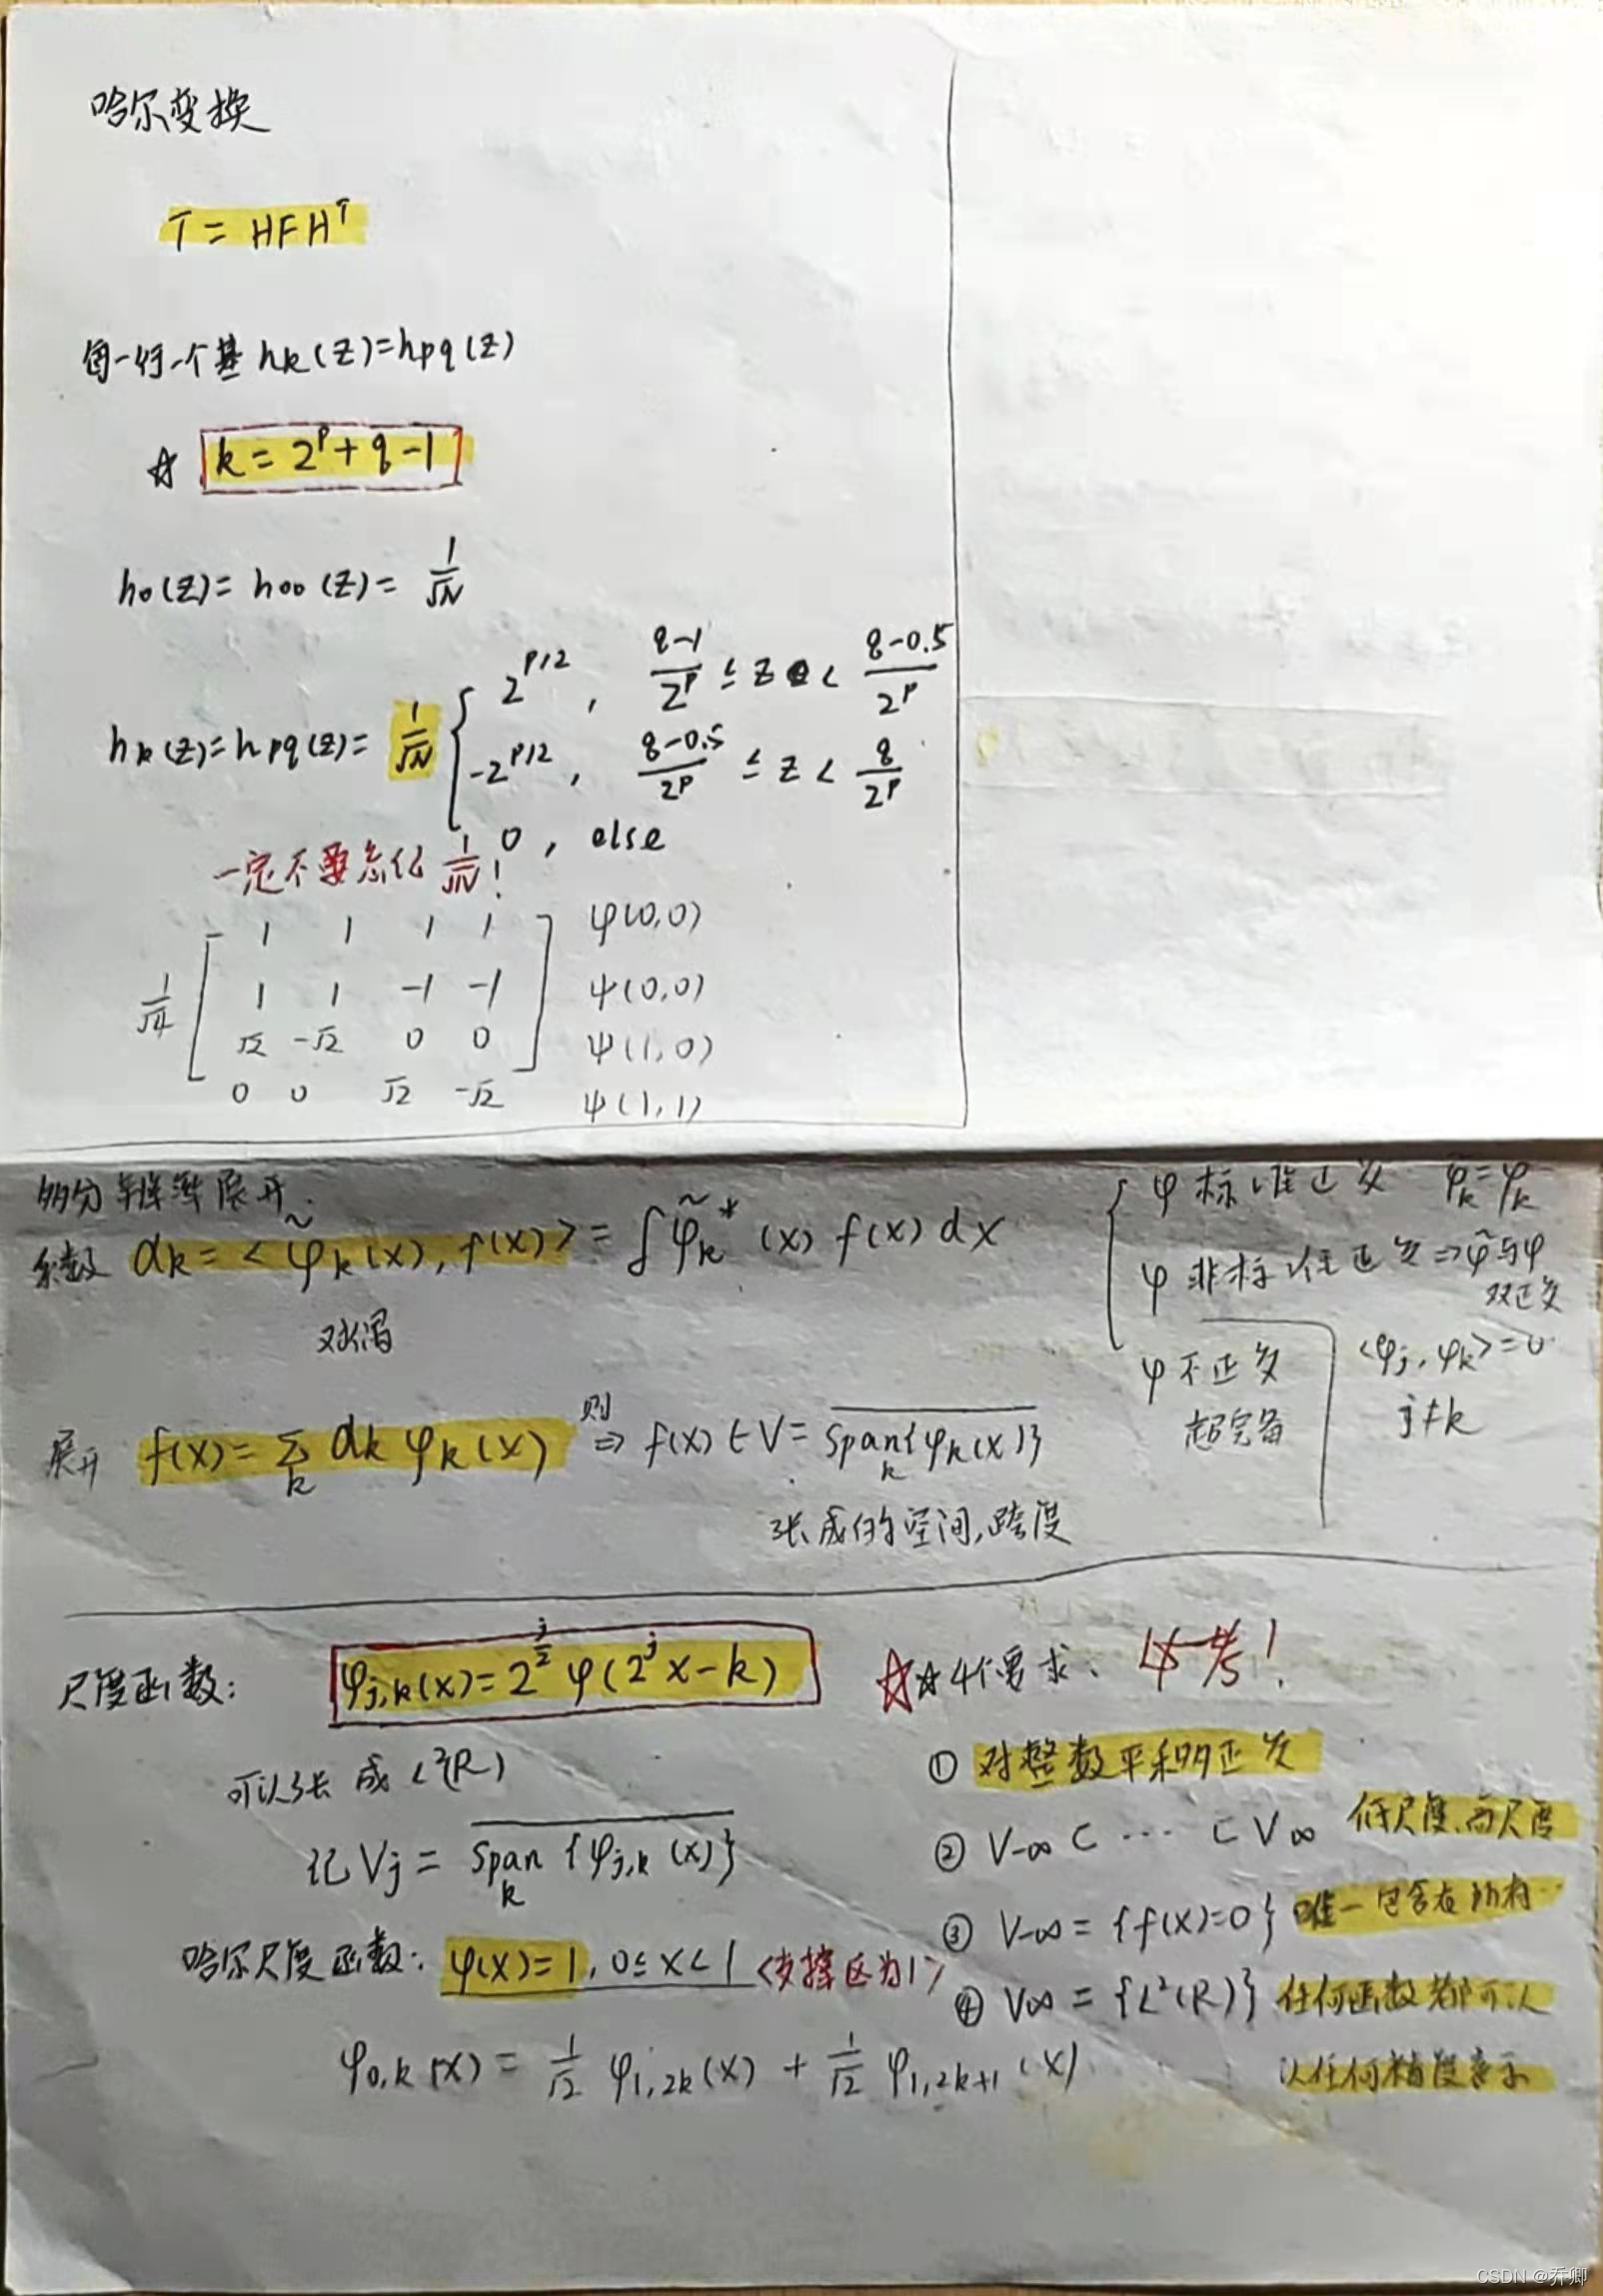 哈尔变换
T = HFH^T
每一行一个基 h_k(z)=h_pq(z)
☆ k = 2^p + q - 1
h_0(z) = h_00(z) = 1/√N
h_k(z) = h_pq(z) = 1/√N { 2^{p/2}, (q-1)/2^p ≤ z < (q-0.5)/2^p
-2^{p/2}, (q-0.5)/2^p ≤ z < q/2^p
0, else
一定不要忘记 1/√N!
1 1 1 1 φ(0,0)
1/√4 1 1 -1 -1 ψ(0,0)
√2 -√2 0 0 ψ(1,0)
0 0 √2 -√2 ψ(1,1)
多分辨率展开:
系数 α_k = <φ̃_k(x), f(x)> = ∫ φ̃_k^*(x) f(x) dx
对偶
展开 f(x) = Σ_k α_k φ_k(x) 则 ⇒ f(x) ∈ V = \overline{Span_k{φ_k(x)}}
张成的空间,跨度
φ 标准正交 φ̃_k = φ_k
φ 非标准正交 ⇒ φ̃与φ
双正交
φ 不正交
超完备
<φ_j, φ_k> = 0
j ≠ k
尺度函数: φ_{j,k}(x) = 2^{j/2} φ(2^j x - k)
可以张成 L²(R)
记 V_j = \overline{Span_k{φ_{j,k}(x)}}
哈尔尺度函数: φ(x) = 1, 0 ≤ x < 1 <支撑区为1>
φ_{0,k}(x) = 1/√2 φ_{1,2k}(x) + 1/√2 φ_{1,2k+1}(x)
☆☆ 4个要求:
① 对整数平移正交
② V_{-∞} ⊂ ... ⊂ V_∞ 低尺度,高尺度
③ V_{-∞} = {f(x)=0} 唯一包含在所有…
④ V_∞ = {L²(R)} 任何函数都可以
以任何精度表示
CSDN @乔卿